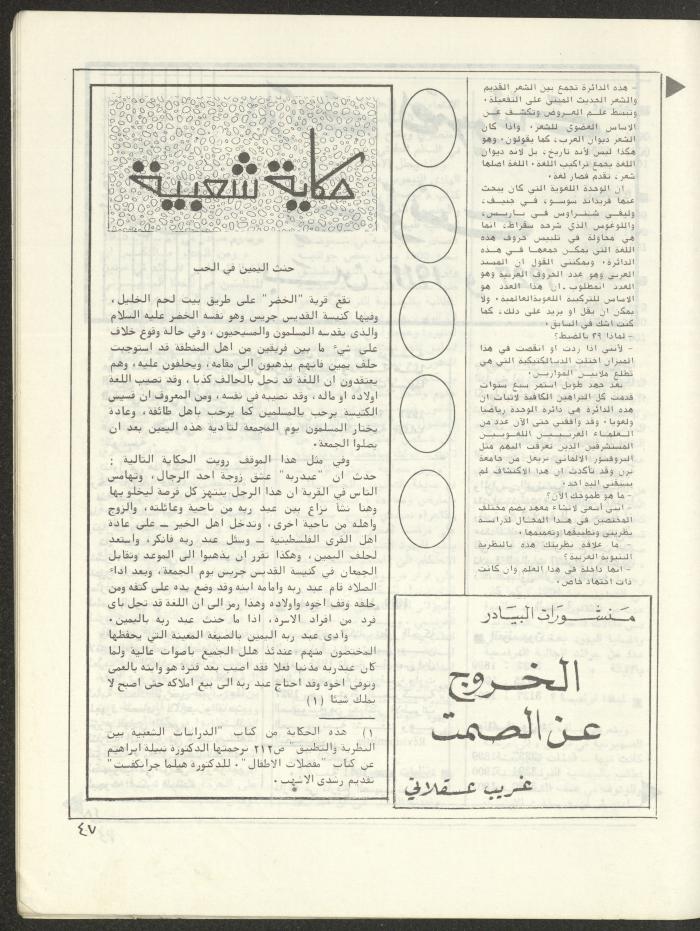 - هذه الدائرة تجمع بين الشعر القديم
والشعر الحديث المبني على التفعيلة.
وتبسط علم العروض وتكشف عن
الاساس العضوي للشعر. واذا كان
الشعر ديوان العرب، كما يقولون. وهو
هكذا ليس لأنه تاريخ، بل لانه ديوان
اللغة يجمع تراكيب اللغة. اللغة اصلها
شعر، تقدم فصار لغة.
ان الوحدة اللغوية التي كان يبحث
عنها فرديناند سوسو، في جنيف،
وليفي شتراوس في باريس،
واللوغوس الذي شرحه سقراط، انما
هي محاولة في تلبيس حروف هذه
اللغة التي يمكن جمعها في هذه
الدائرة. ويمكنني القول ان المسند
العربي وهو عدد الحروف العربية وهو
العدد المطلوب. ان هذا العدد هو
الاساس للتركيبة اللغوية العالمية. ولا
يمكن ان يقل او يزيد على ذلك، كما
كنت اشك في السابق.
- لماذا ٢٩ بالضبط؟
- لأنني اذا زدت او انقصت في هذا
الميزان اختلت الديالكتيكية التي هي
تطلع ملايين الموازين.
بعد جهد طويل استمر سبع سنوات
قدمت كل البراهين الكافية لاثبات ان
هذه الدائرة هي دائرة الوحدة رياضيا
ولغويا. وقد وافقني حتى الآن عدد من
العلماء العربيين اللغويين
المستشرقين الذين تعرفت اليهم مثل
البروفسور الالماني من جامعة
وقد تأكدت ان هذا الاكتشاف لم
يسبقني اليه احد.
- ما هو طموحك الآن؟
- انني اسعى لانشاء معهد يضم مختلف
المختصين في هذا المجال لدراسة
نظريتي وتطبيقها وتعميمها.
- ما علاقة نظريتك هذه بالنظرية
البنيوية الغربية؟
- انها داخلة في هذا العلم وان كانت
ذات اجتهاد خاص.
منشورات البيادر
الخروج
عن الصمت
غريب عسقلاني
حكاية شعبية
حنث اليمين في الحب
تقع قرية "الخضر" على طريق بيت لحم الخليل،
وفيها كنيسة القديس جريس وهو نفسه الخضر عليه السلام
والذي يقدسه المسلمون والمسيحيون، وفي حالة وقوع خلاف
على شيء ما بين فريقين من اهل المنطقة قد استوجبت
حلف يمين فانهم يذهبون الى مقامه، ويحلفون عليه، وهم
يعتقدون ان اللعنة قد تحل بالحالف كذبا، وقد تصيب اللعنة
اولاده او ماله، وقد تصيبه في نفسه، ومن المعروف ان قسيس
الكنيسة يرحب بالمسلمين كما يرحب باهل طائفته، وعادة
يختار المسلمون يوم الجمعة لتادية هذه اليمين بعد ان
يصلوا الجمعة.
وفي مثل هذا الموقف رويت الحكاية التالية :
حدث ان "عبدربه" عشق زوجة احد الرجال، وتهامس
الناس في القرية ان هذا الرجل ينتهز كل فرصة ليخلو بها
وهنا نشأ نزاع بين عبد ربه من ناحية وعائلته، والزوج
واهله من ناحية اخرى، وتدخل اهل الخير – على عادة
اهل القرى الفلسطينية – وسئل عبد ربه فانكر، واستعد
لحلف اليمين، وهكذا تقرر ان يذهبوا الى الموعد وتقابل
الجمعان في كنيسة القديس جريس يوم الجمعة، وبعد اداء
الصلاة قام عبد ربه وامامه ابنه وقد وضع يده على كتفه ومن
خلفه وقف اخوه واولاده وهذا رمز الى ان اللعنة قد تحل باى
فرد من افراد الاسرة، اذا ما حنث عبد ربه باليمين.
وأدى عبد ربه اليمين بالصيغة المعينة التي يحفظها
المختصون منهم عندئذ هلل الجميع باصوات عالية ولما
كان عبدربه مذنبا فعلا فقد اصيب بعد فترة هو وابنه بالعمى
وتوفى اخوه وقد احتاج عبد ربه الى بيع املاكه حتى اصبح لا
يملك شيئا (١)
١) هذه الحكاية من كتاب "الدراسات الشعبية بين
النظرية والتطبيق" ص٢١٢ ترجمتها الدكتورة نبيلة ابراهيم
عن كتاب "مفضلات الاطفال". للدكتورة هيلما جرانكفست"
تقديم رشدي الاشهب.
٤٧